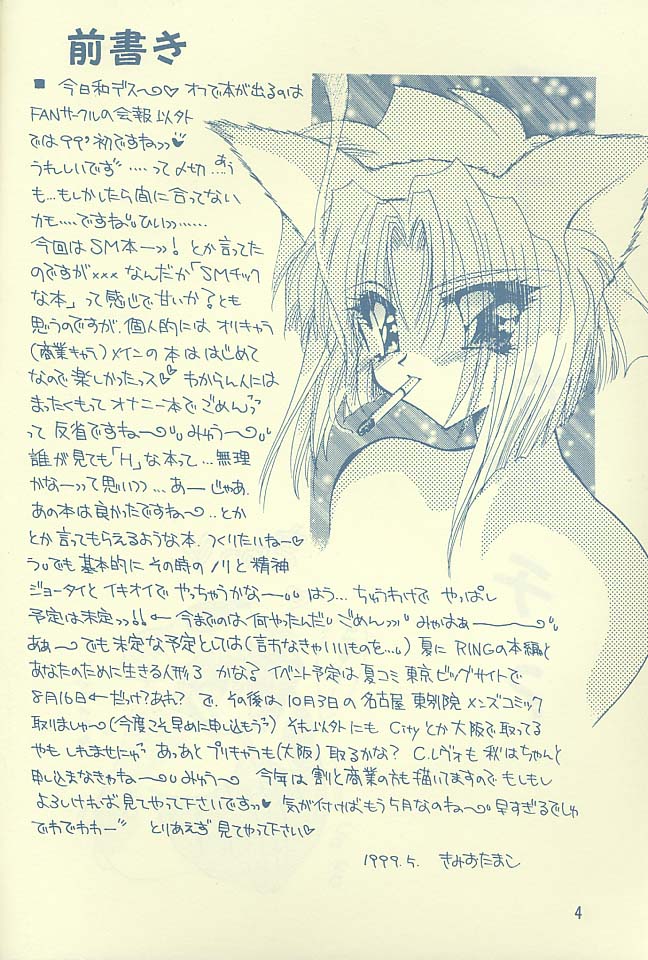 前書き
■ 今日和デス〜♡ オフで本が出るのは
FANサークルの会報以外
では99'初ですねッ♥
うれしいです゛‥‥って〆切‥あう
も…もしかしたら間に合ってない
カモ‥‥ですね〃ひいッ……
今回はSM本ーッ! とか言ってた
のですが××× なんだか「SMチック
な本」って感じで甘いか?とも
思うのですが、個人的にはオリキャラ
(商業キャラ)メインの本ははじめて
なので楽しかったっス♡ わからん人には
まったくもってオナニー本でごめんっ
って反省ですね〜〃 みゅう〜〃
誰が見ても「H」な本って…無理
かなーって思いッ…あーじゃあ、
あの本は良かったですね〜‥とか
とか言ってもらえるような本、つくりたいねー♡
う〃でも基本的にその時のノリと精神
ジョータイとイキオイでやっちゃうかな〜〃 はう… ちゅうわけで やっぱし
予定は未定ッ!! ← 今までのは何やったんだ〃ごめんッ〃みゃはぁー〜〃
あぁ〜でも未定な予定としては(言わなきゃいいものを…〃)夏にRINGの本編と
あなたのために生きる人形3 かな? イベント予定は夏コミ 東京ビッグサイトで
8月16日←だっけ?あれ? で、その後は10月3日の名古屋 東別院 メンズコミック
取りましゃ〜(今度こそ早めに申し込もうっ)それ以外にも Cityとか大阪で取ってる
やもしれませにゃっ あっあとプリキャラも(大阪)取るかな? C.レヴォも秋はちゃんと
申し込まなきゃね〜〃みゅう〜 今年は割と商業の方も描いてますのでもしもし
よろしければ見てやって下さいですッ♥ 気が付けばもう5月なのね〜〃早すぎるでしゅ
でわでわわー〃 とりあえず見てやって下さい♡
1999.5. きみおたまこ
4